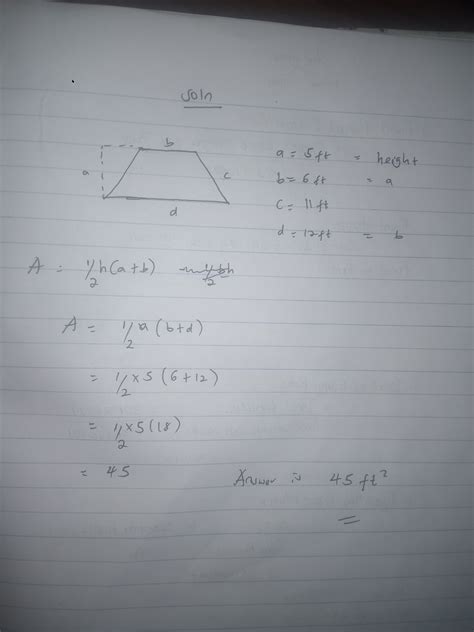 Soln
b
a
c
d
a = 5ft = height
b = 6ft = a
c = 11ft
d = 12ft = b
A = 1/2 h(a+b)
A = 1/2 a (b+d)
= 1/2 x 5 (6+12)
= 1/2 x 5 (18)
= 45
Answer is 45 ft²